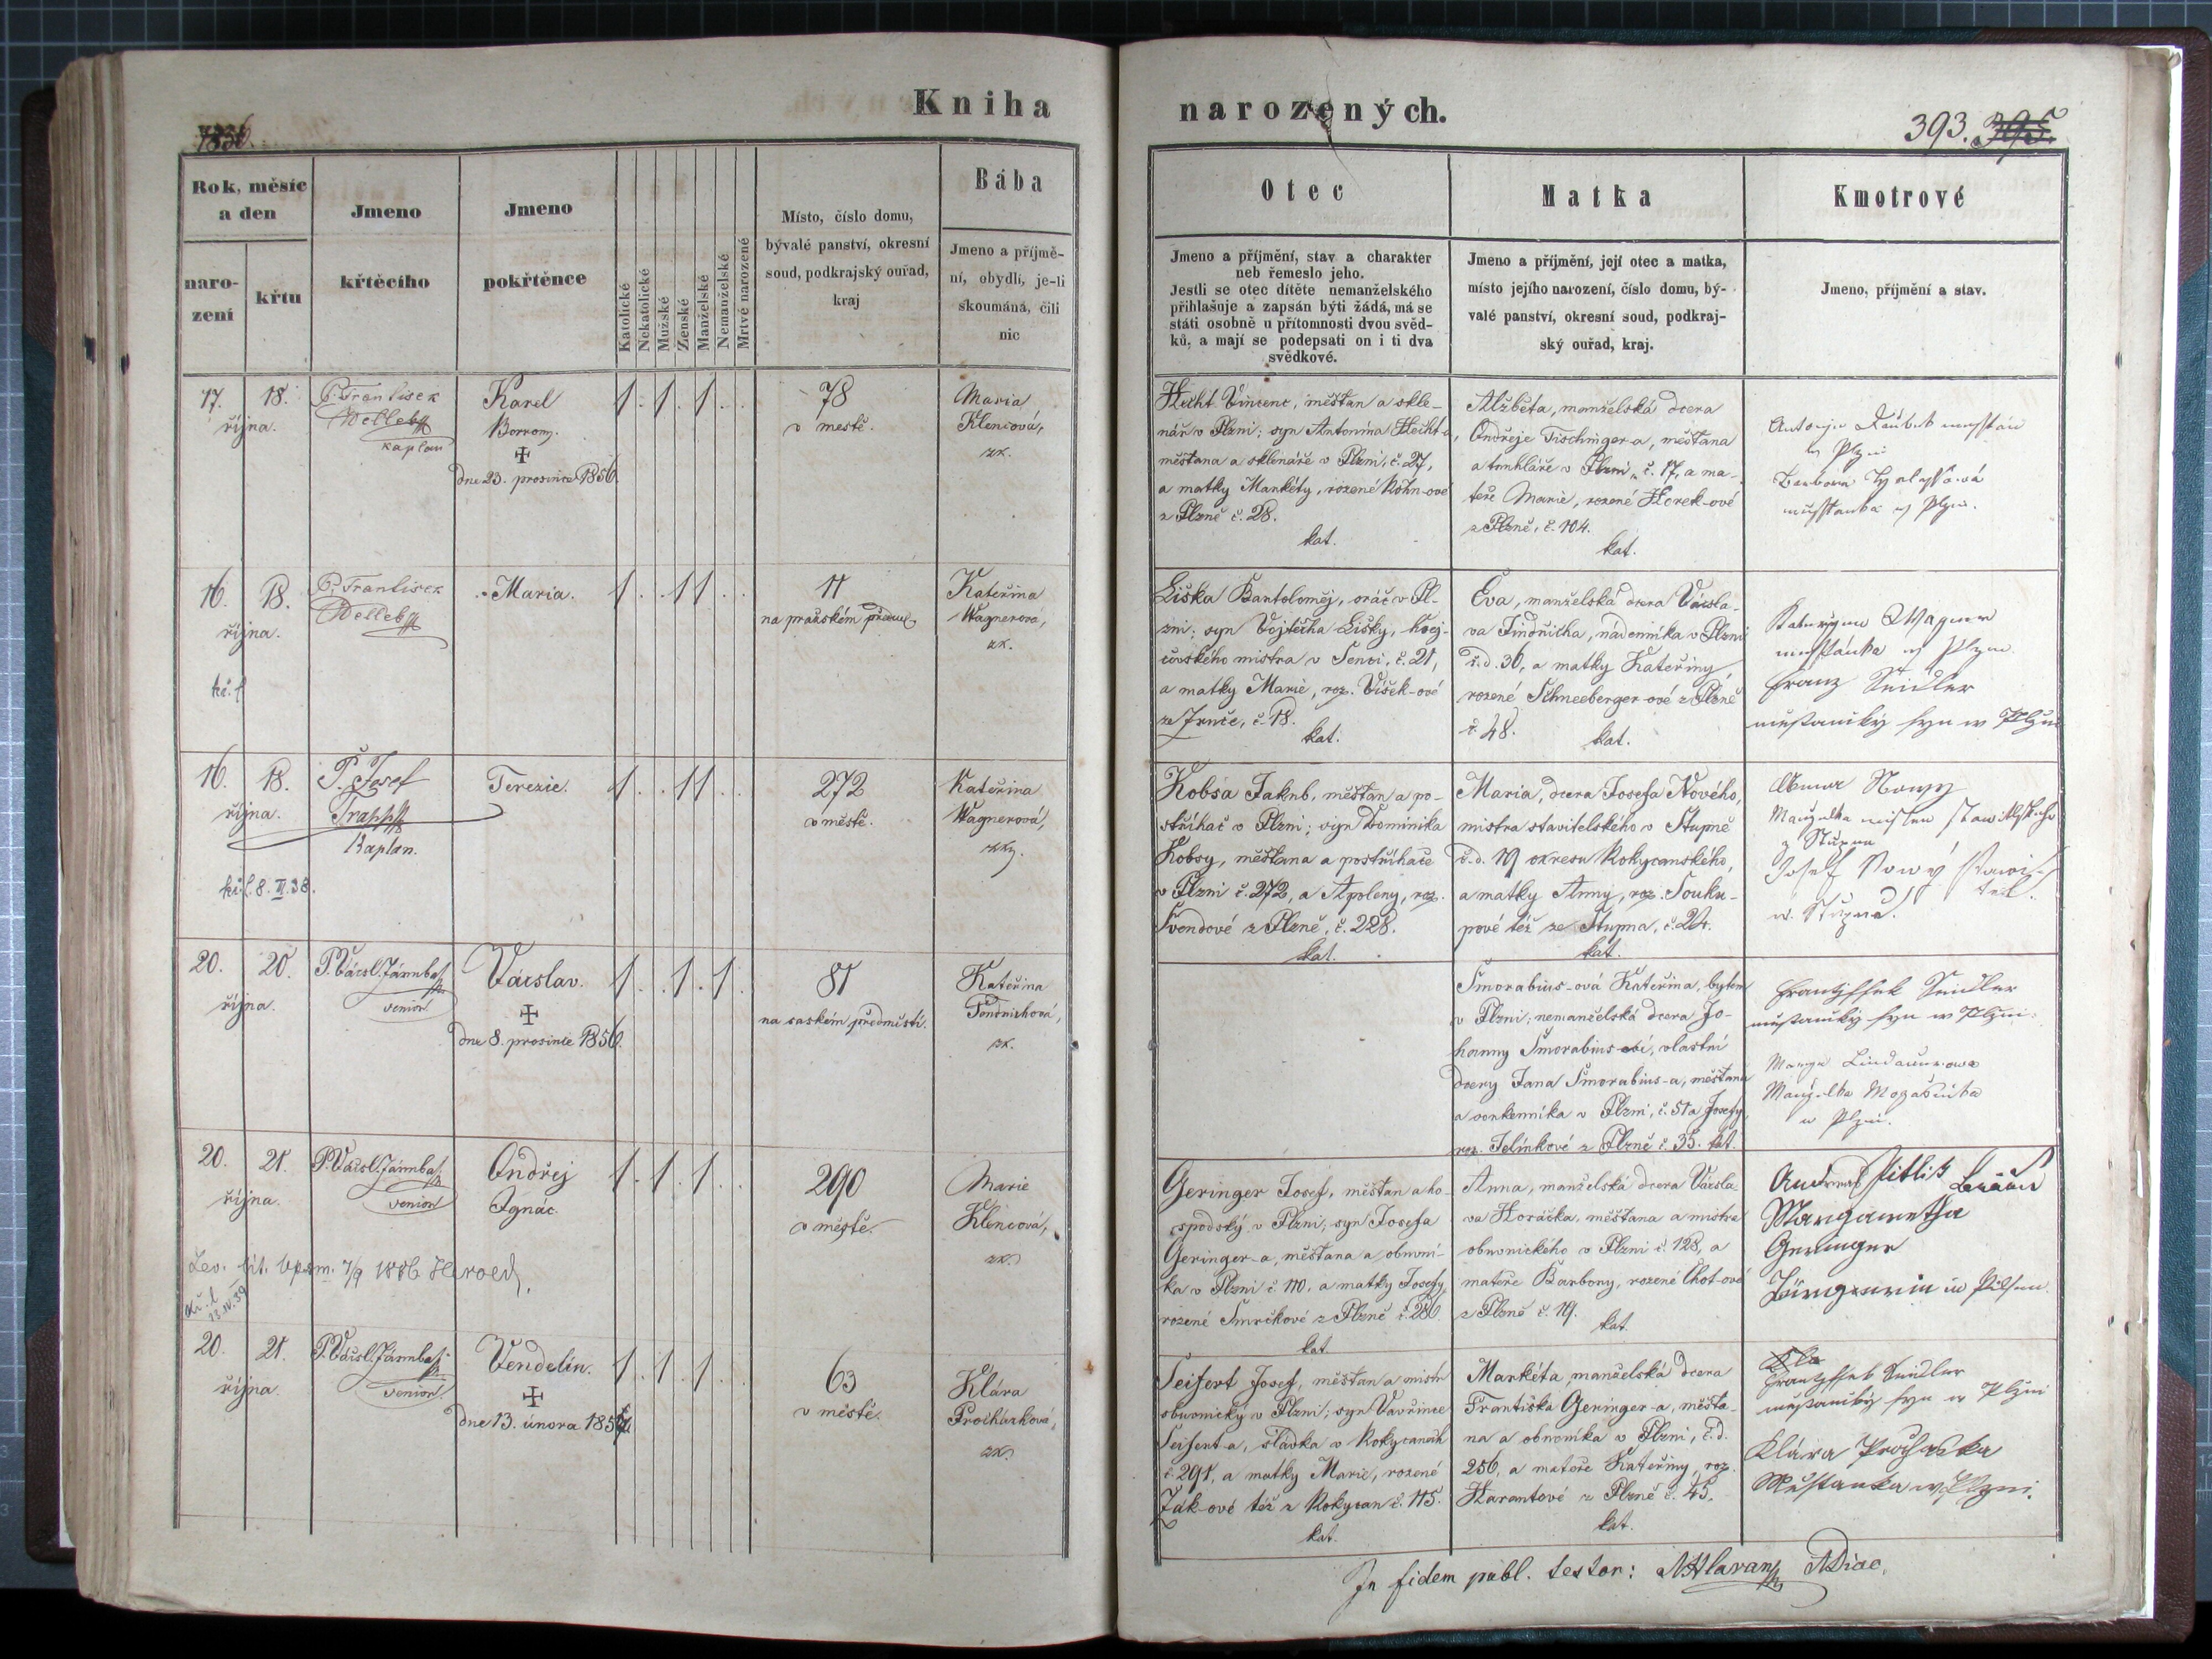 Kniha
narozených.
1856.
393. 395.
Rok, měsíc
a den
naro-
zení
křtu
Jmeno
křtěcího
Jmeno
pokřtěnce
Katolické
Nekatolické
Mužské
Ženské
Manželské
Nemanželské
Mrtvé narozené
Místo, číslo domu,
bývalé panství, okresní
soud, podkrajský ouřad,
kraj
Bába
Jmeno a příjmě-
ní, obydlí, je-li
skoumána, čili
nic
Otec
Jmeno a příjmění, stav a charakter
neb řemeslo jeho.
Jestli se otec dítěte nemanželského
přihlašuje a zapsán býti žádá, má se
státi osobně u přítomnosti dvou svěd-
ků, a mají se podepsati on i ti dva
svědkové.
Matka
Jmeno a příjmění, její otec a matka,
místo jejího narození, číslo domu, bý-
valé panství, okresní soud, podkraj-
ský ouřad, kraj.
Kmotrové
Jmeno, příjmění a stav.
17. 18.
října.
P. František
Welleb
kaplan
Karel
Borrom.
✝
dne 23. prosince 1856.
1 . 1 . 1 . .
78
v městě.
Maria
Klencová,
zk.
Hecht Vincenc, měšťan a skle-
nář v Plzni; syn Antonína Hecht-a,
měšťana a sklenáře v Plzni, č. 27,
a matky Markéty, rozené Kohn-ové
z Plzně č. 28.
kat.
Alžběta, manželská dcera
Ondřeje Tischinger-a, měšťana
a truhláře v Plzni, č. 17, a ma-
teře Marie, rozené Horek-ové
z Plzně, č. 104.
kat.
16. 18.
října.
P. František
Welleb
Maria.
1 . . 1 1 . .
11
na pražském předm.
Kateřina
Wagnerová,
zk.
Liška Bartoloměj, oráč v Pl-
zni; syn Vojtěcha Lišky, krej-
čovského mistra v Senci, č. 21,
a matky Marie, roz. Víšek-ové
ze Jruče, č. 18.
kat.
Eva, manželská dcera Václa-
va Jindřicha, nádenníka v Plzni
č.d. 36, a matky Kateřiny
rozené Schneeberger-ové z Plzně
č. 48.
kat.
Wagner
Franz Seidler
syn w Plzni
16. 18.
října.
P. Josef
Trapp
Kaplan.
8. II. 38.
Terezie.
1 . . 1 1 . .
272
v městě.
Kateřina
Wagnerová,
zk.
Kobsa Jakub, měšťan a po-
střihač v Plzni; syn Dominika
Kobsy, měšťana a postřihače
v Plzni č. 272, a Apoleny, roz.
Švendové z Plzně, č. 228.
kat.
Maria, dcera Josefa Nového,
mistra stavitelského v Stupně
č.d. 19 okresu Rokycanského,
a matky Anny, roz. Souku-
pové též ze Stupna, č. 24.
kat.
Anna Nowy
Manzelka
z Stupna
Josef Nowý stawi-
tel
w Stupně.
20. 20.
října.
P. Václ. Jármba
senior
Václav.
✝
dne 8. prosince 1856.
1 . . 1 . 1 .
81
na saském předměstí.
Kateřina
zk.
Smorabius-ová Kateřina, bytem
v Plzni; nemanželská dcera Jo-
hanny Smorabius-ové, vlastní
dcery Jana Smorabius-a, měšťana
a soukenníka v Plzni, č. 51 a Josefy
roz. Jelínkové z Plzně č. 35. kat.
Seidler
syn w Plzni
Manzelka
w Plzni.
20. 21.
října.
P. Václ. Jármba
senior
Ondřej
Ignác.
1 . 1 . 1 . .
290
v městě.
Marie
Klencová,
zk.
Geringer Josef, měšťan a ho-
spodský v Plzni; syn Josefa
Geringer-a, měšťana a obuvní-
ka v Plzni č. 110, a matky Josefy,
rozené Smrčkové z Plzně č. 286.
kat.
Anna, manželská dcera Václa-
va Horáčka, měšťana a mistra
obuvnického v Plzni č. 128, a
mateře Barbory, rozené Chot-ové
z Plzně č. 19.
kat.
Andreas
Margaretha
Geringer
Bürgerin in Pilsen
13. IV. 39
20. 21.
října.
P. Václ. Jármba
senior
Vendelín.
✝
dne 13. února 1857.
1 . 1 . 1 . .
63
v městě.
Klára
Procházková,
zk.
Seifert Josef, měšťan a mistr
obuvnický v Plzni; syn Vavřince
Seifert-a, sládka v Rokycanech
č. 291, a matky Marie, rozené
Žák-ové též z Rokycan č. 115.
kat.
Markéta, manželská dcera
Františka Geringer-a, měšťa-
na a obuvníka v Plzni, č.d.
256, a mateře Kateřiny, roz.
Harantové z Plzně č. 45.
kat.
Seidler
syn w Plzni
Klára Prochaska
w Plzni
In fidem publ. testor: